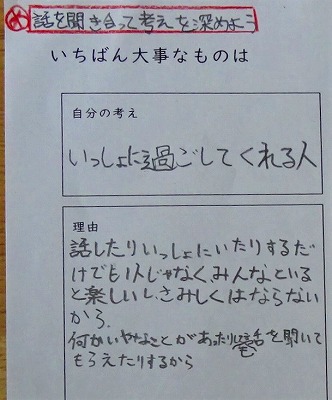 話を聞き合って考えを深めよう
いちばん大事なものは
自分の考え
いっしょに過ごしてくれる人
理由
話したりいっしょにいたりするだ
けでも1人じゃなく、みんなといる
と楽しいし、さみしくはならない
から.
何かいやなことがあったり話を聞いて
もらえたりするから